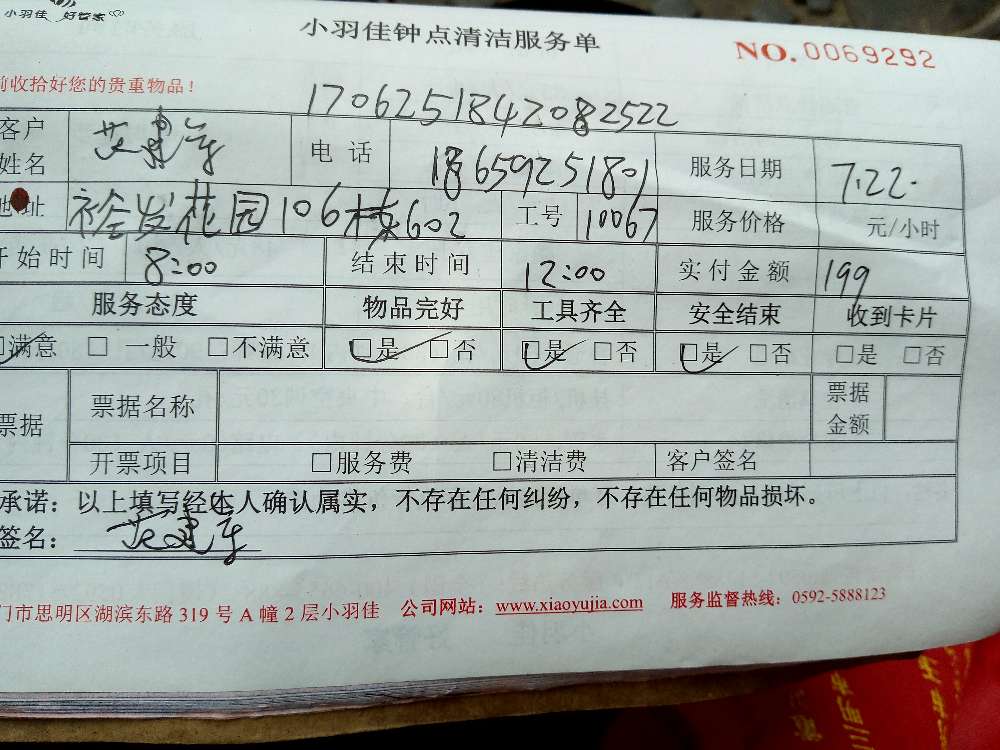 小羽佳 好管家
小羽佳钟点清洁服务单
NO.0069292
前收拾好您的贵重物品！
1706251842082522
客户姓名 范建军 电话 18659251801 服务日期 7.22.
地址 裕发花园106栋602 工号 10067 服务价格 元/小时
开始时间 8:00 结束时间 12:00 实付金额 199
服务态度 物品完好 工具齐全 安全结束 收到卡片
☑满意 □一般 □不满意 ☑是 □否 ☑是 □否 ☑是 □否 □是 □否
票据 票据名称 票据金额
开票项目 □服务费 □清洁费 客户签名
承诺：以上填写经本人确认属实，不存在任何纠纷，不存在任何物品损坏。
签名： 范建军
门市思明区湖滨东路 319 号 A 幢 2 层小羽佳 公司网站：www.xiaoyujia.com 服务监督热线：0592-5888123